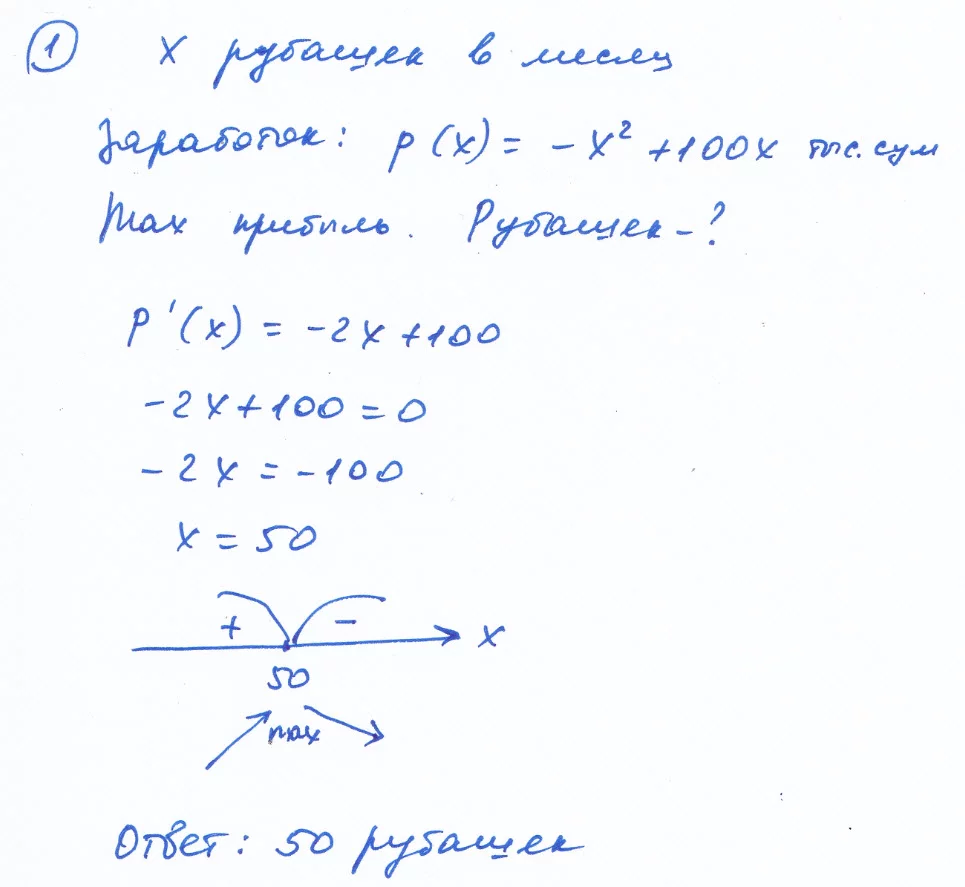 ① x рубашек в месяц
Заработок: p(x) = -x² + 100x тыс. сум
Max прибыль. Рубашек - ?
P'(x) = -2x + 100
-2x + 100 = 0
-2x = -100
x = 50
+ - x
50
max
Ответ: 50 рубашек